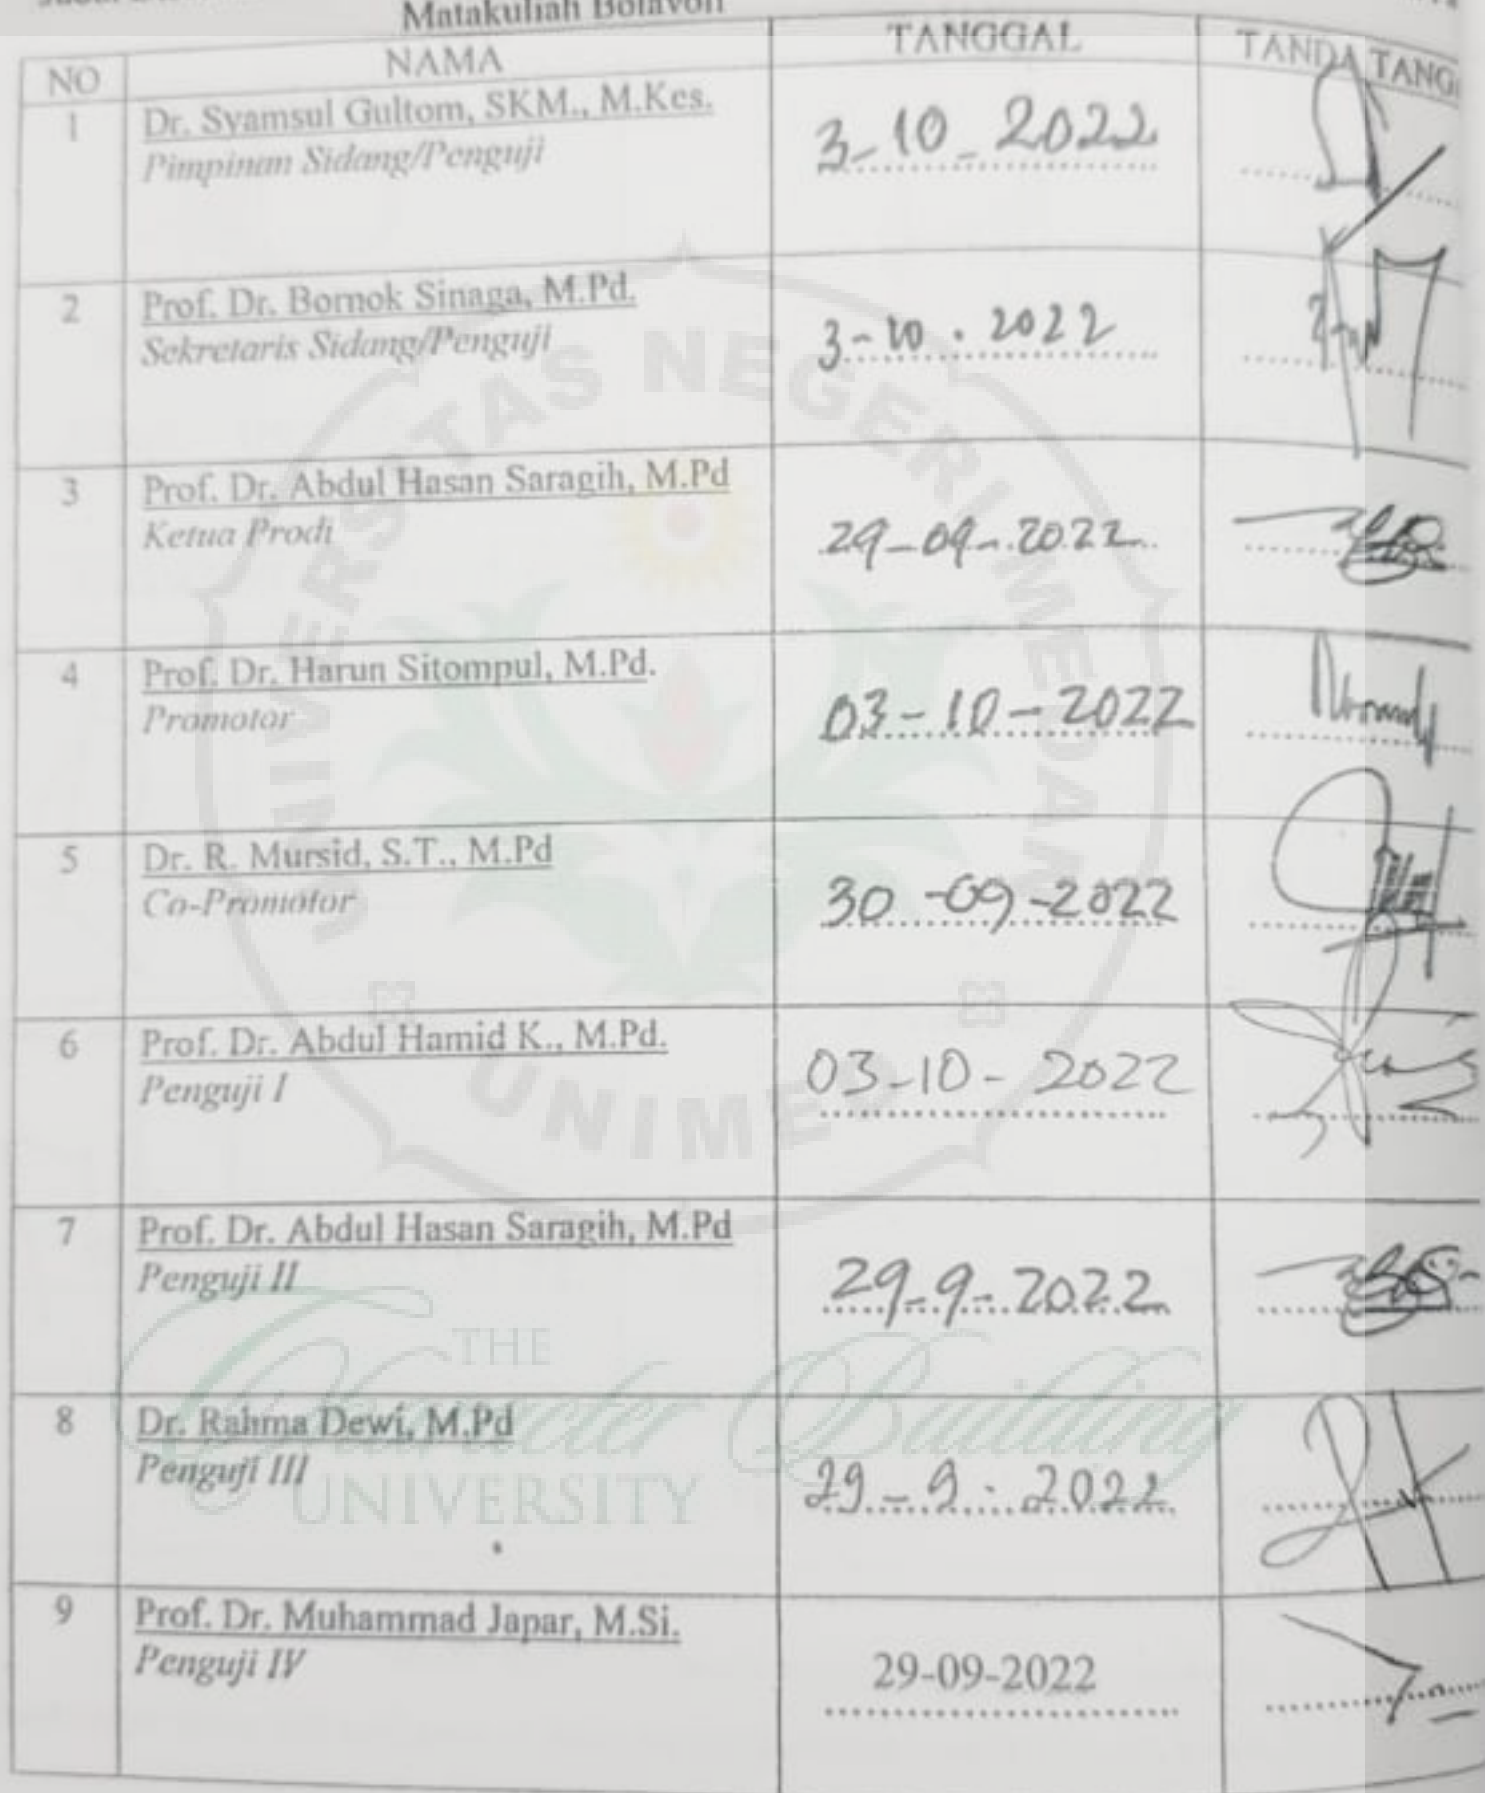 Matakuliah Bolavoli
NO NAMA TANGGAL TANDA TANG
1 Dr. Syamsul Gultom, SKM., M.Kes.
Pimpinan Sidang/Penguji
3-10-2022
2 Prof. Dr. Bornok Sinaga, M.Pd.
Sekretaris Sidang/Penguji
3-10.2022
3 Prof. Dr. Abdul Hasan Saragih, M.Pd
Ketua Prodi
29-09-2022
4 Prof. Dr. Harun Sitompul, M.Pd.
Promotor
03-10-2022
5 Dr. R. Mursid, S.T., M.Pd
Co-Promotor
30-09-2022
6 Prof. Dr. Abdul Hamid K., M.Pd.
Penguji I
03-10-2022
7 Prof. Dr. Abdul Hasan Saragih, M.Pd
Penguji II
29-9-2022
8 Dr. Rahma Dewi, M.Pd
Penguji III
29-9-2022
9 Prof. Dr. Muhammad Japar, M.Si.
Penguji IV
29-09-2022
UNIVERSITAS NEGERI MEDAN
UNIMED
THE
Character Building
UNIVERSITY